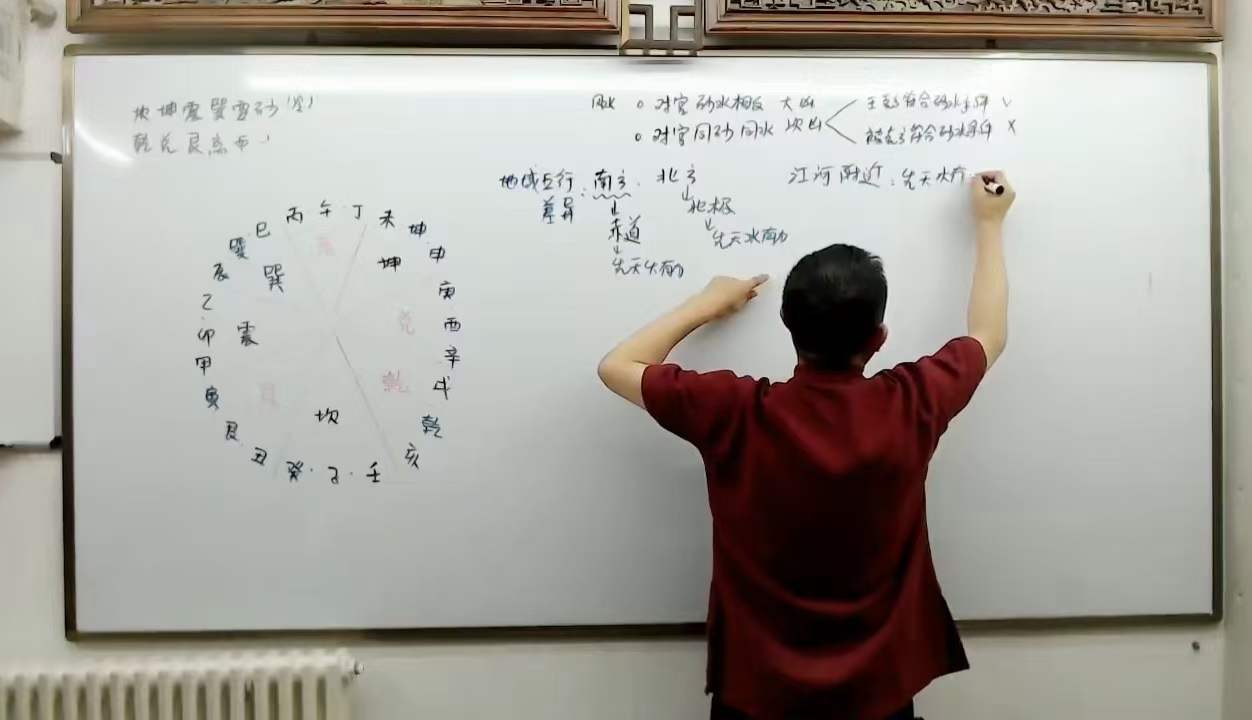 坎坤震巽需砂
乾兑艮离
风水 对宫砂水相反 大凶 符合砂水条件 √
对宫同砂同水 次凶 符合砂水条件 X
地域五行差异: 南方. 北方
赤道
先天火有力
北极
先天水有力
江河附近: 先天水有
丙 午 丁 未 坤 申 庚 酉 辛 戌 乾 亥 壬 子 癸 丑 艮 寅 甲 卯 乙 辰 巽 巳
离 坤 兑 乾 坎 艮 震 巽